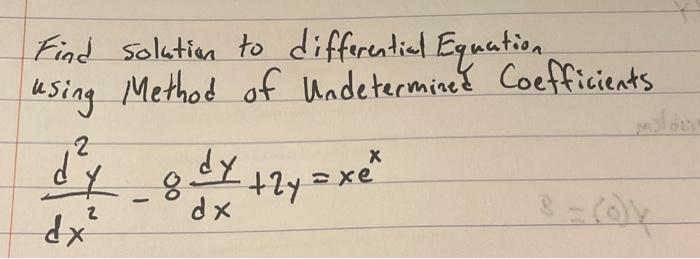 Find solution to differential Equation
using Method of Undetermined Coefficients
d²y/dx² - 8 dy/dx + 2y = xeˣ